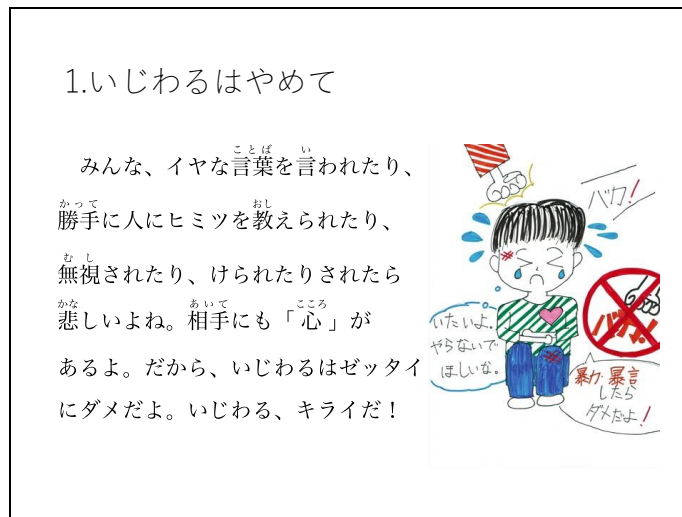 1.いじわるはやめて
みんな、イヤな言葉を言われたり、
勝手に人にヒミツを教えられたり、
無視されたり、けられたりされたら
悲しいよね。相手にも「心」が
あるよ。だから、いじわるはゼッタイ
にダメだよ。いじわる、キライだ！
バカ!
いたいよ。
やらないで
ほしいな。
バカ!
暴力・暴言
したら
ダメだよ!